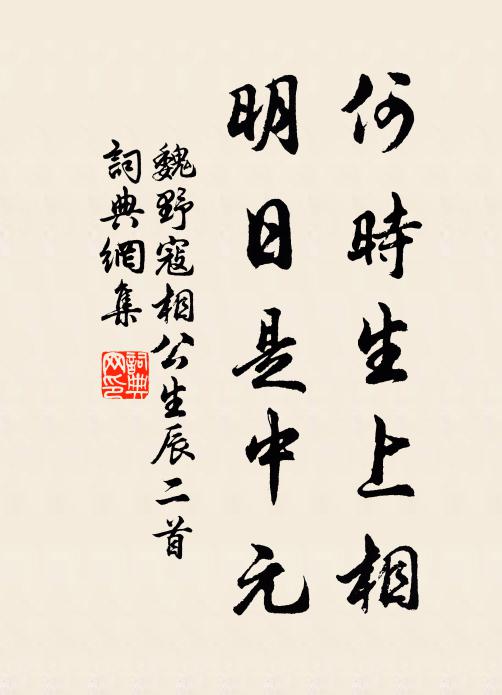 何時生上相
明日是中元
魏野寇相公生辰二首
詞典網集
詞典
网印